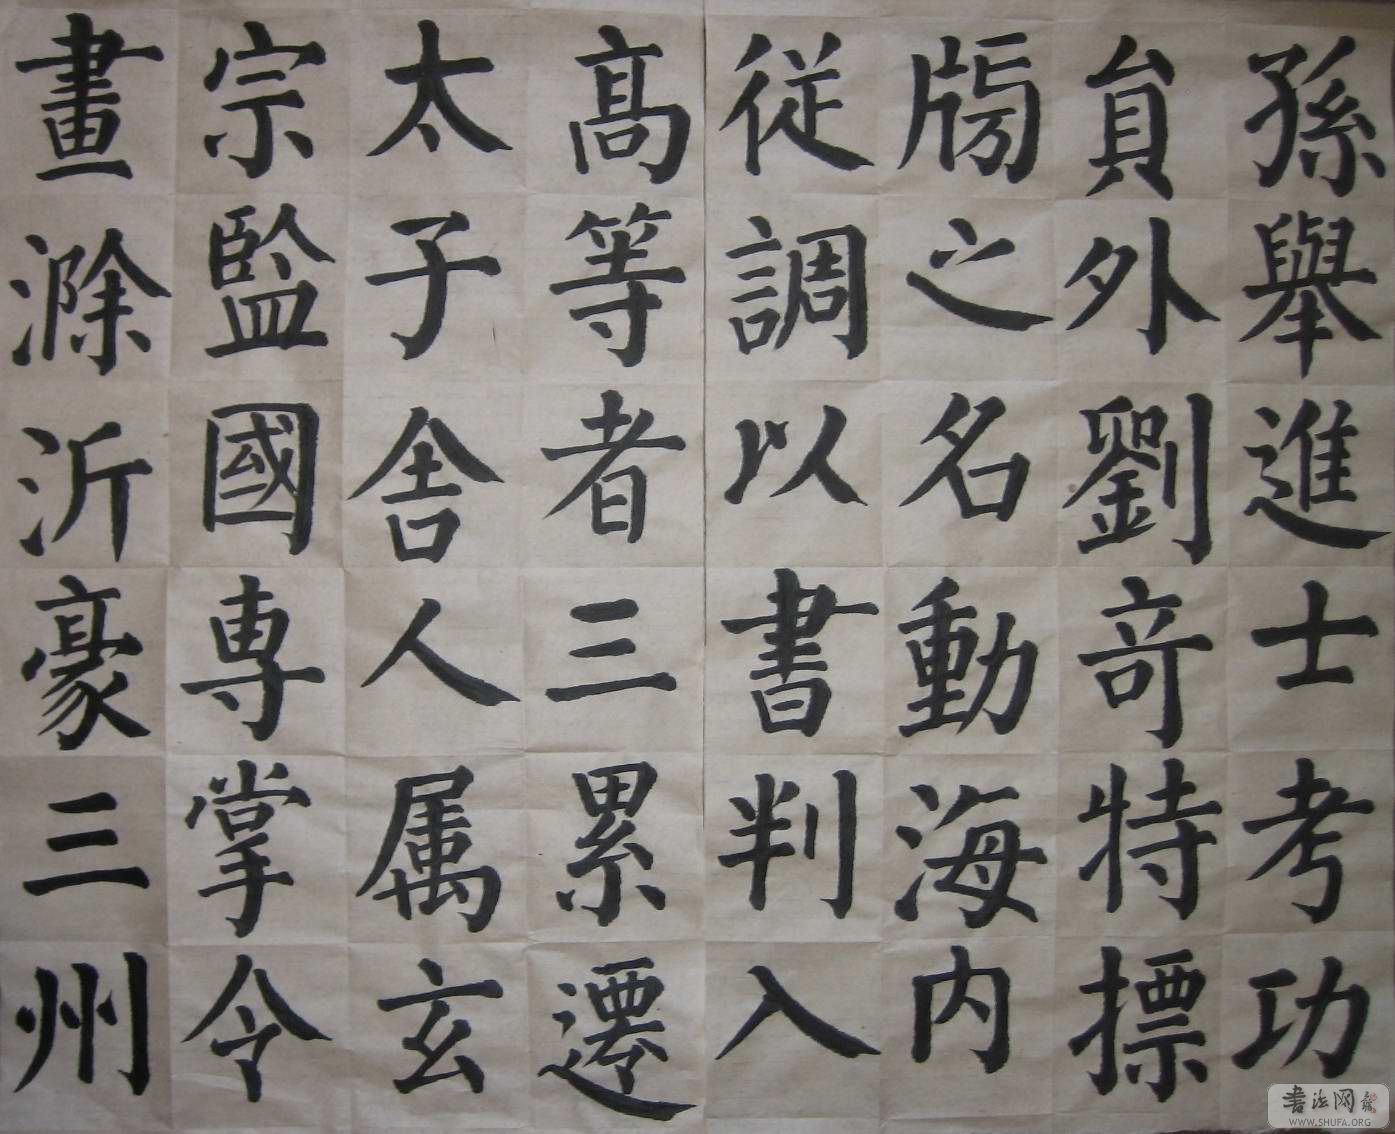 孫舉進士考功
員外劉奇特標
牓之名動海內
從調以書判入
高等者三累遷
太子舍人属玄
宗監國専掌令
畫滁沂豪三州
书法网
WWW.SHUFA.ORG